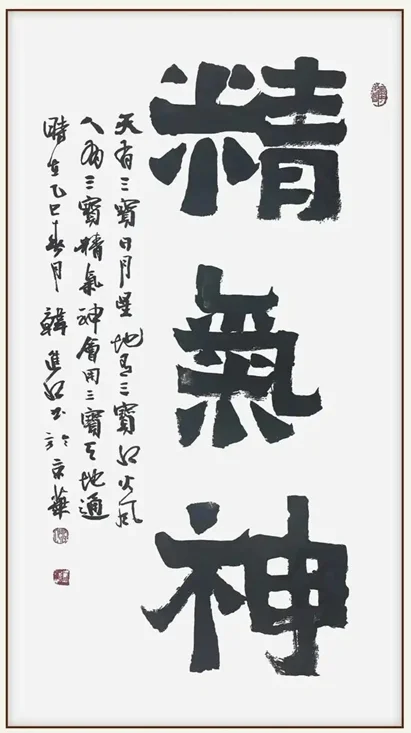 精氣神
天有三寶日月星地有三寶水火风
人有三寶精氣神會用三寶天地通
時在乙巳春月韓進水书於京華